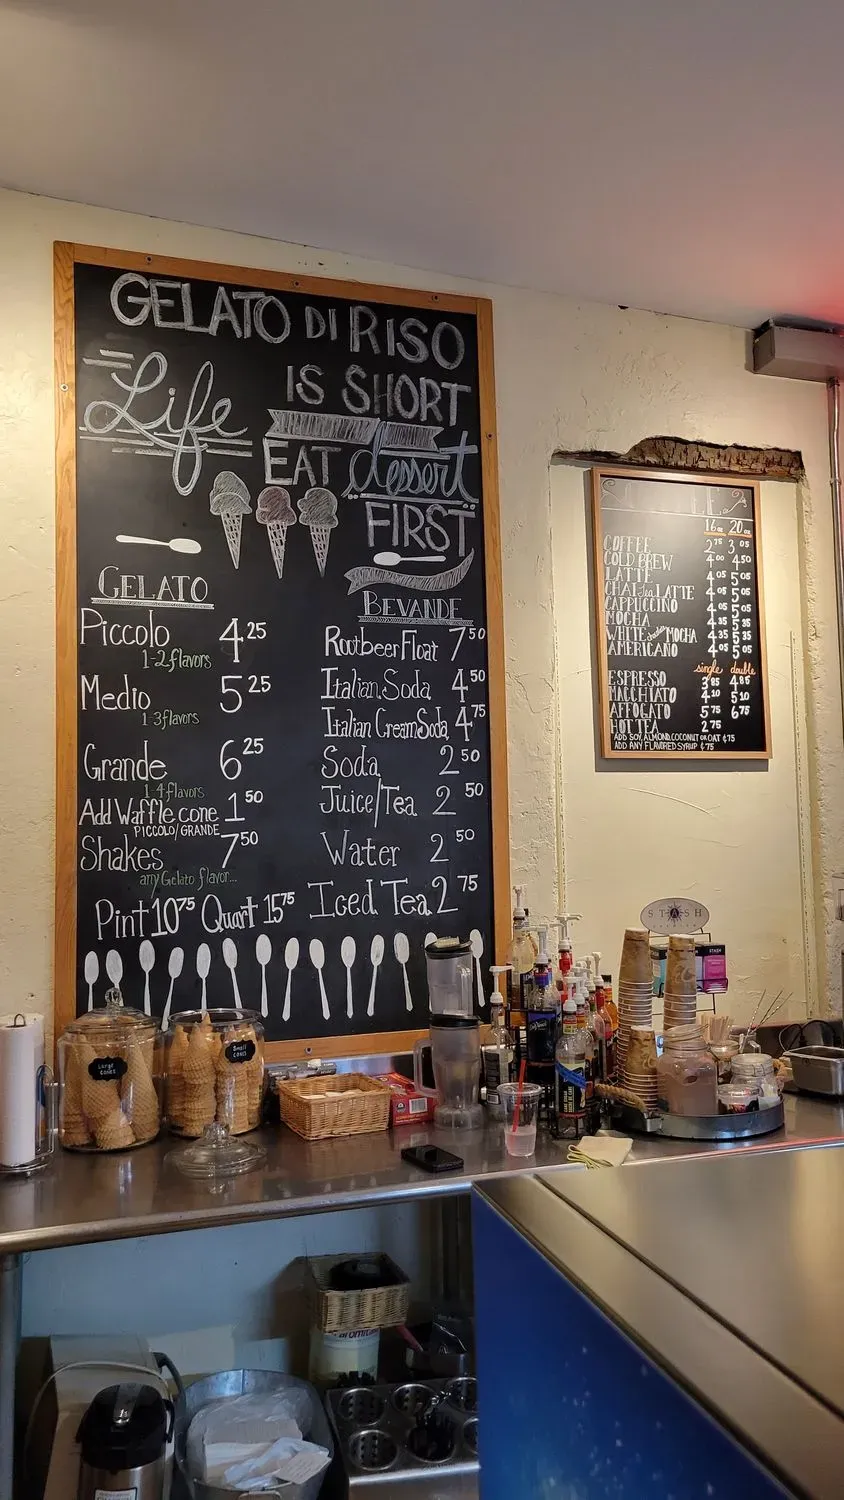 GELATO DI RISO
Life IS SHORT
EAT dessert
FIRST
GELATO
Piccolo 4 25
1-2 flavors
Medio 5 25
1-3 flavors
Grande 6 25
1-4 flavors
Add Waffle cone 1 50
PICCOLO/GRANDE
Shakes 7 50
any Gelato flavor...
Pint 10 75 Quart 15 75
BEVANDE
Rootbeer Float 7 50
Italian Soda 4 50
Italian Cream Soda 4 75
Soda 2 50
Juice/Tea 2 50
Water 2 50
Iced Tea 2 75
16 oz 20 oz
COFFEE 2 75 3 05
COLD BREW 4 00 4 50
LATTE 4 05 5 05
CHAI Tea LATTE 4 05 5 05
CAPPUCCINO 4 05 5 05
MOCHA 4 35 5 35
WHITE MOCHA 4 35 5 35
AMERICANO 4 05 5 05
single double
ESPRESSO 3 85 4 85
MACCHIATO 4 10 5 10
AFFOGATO 5 75 6 75
HOT TEA 2 75
ADD SOY, ALMOND, COCONUT OR OAT ¢75
ADD ANY FLAVORED SYRUP ¢75
STASH
Large
Cones
Small
Cones